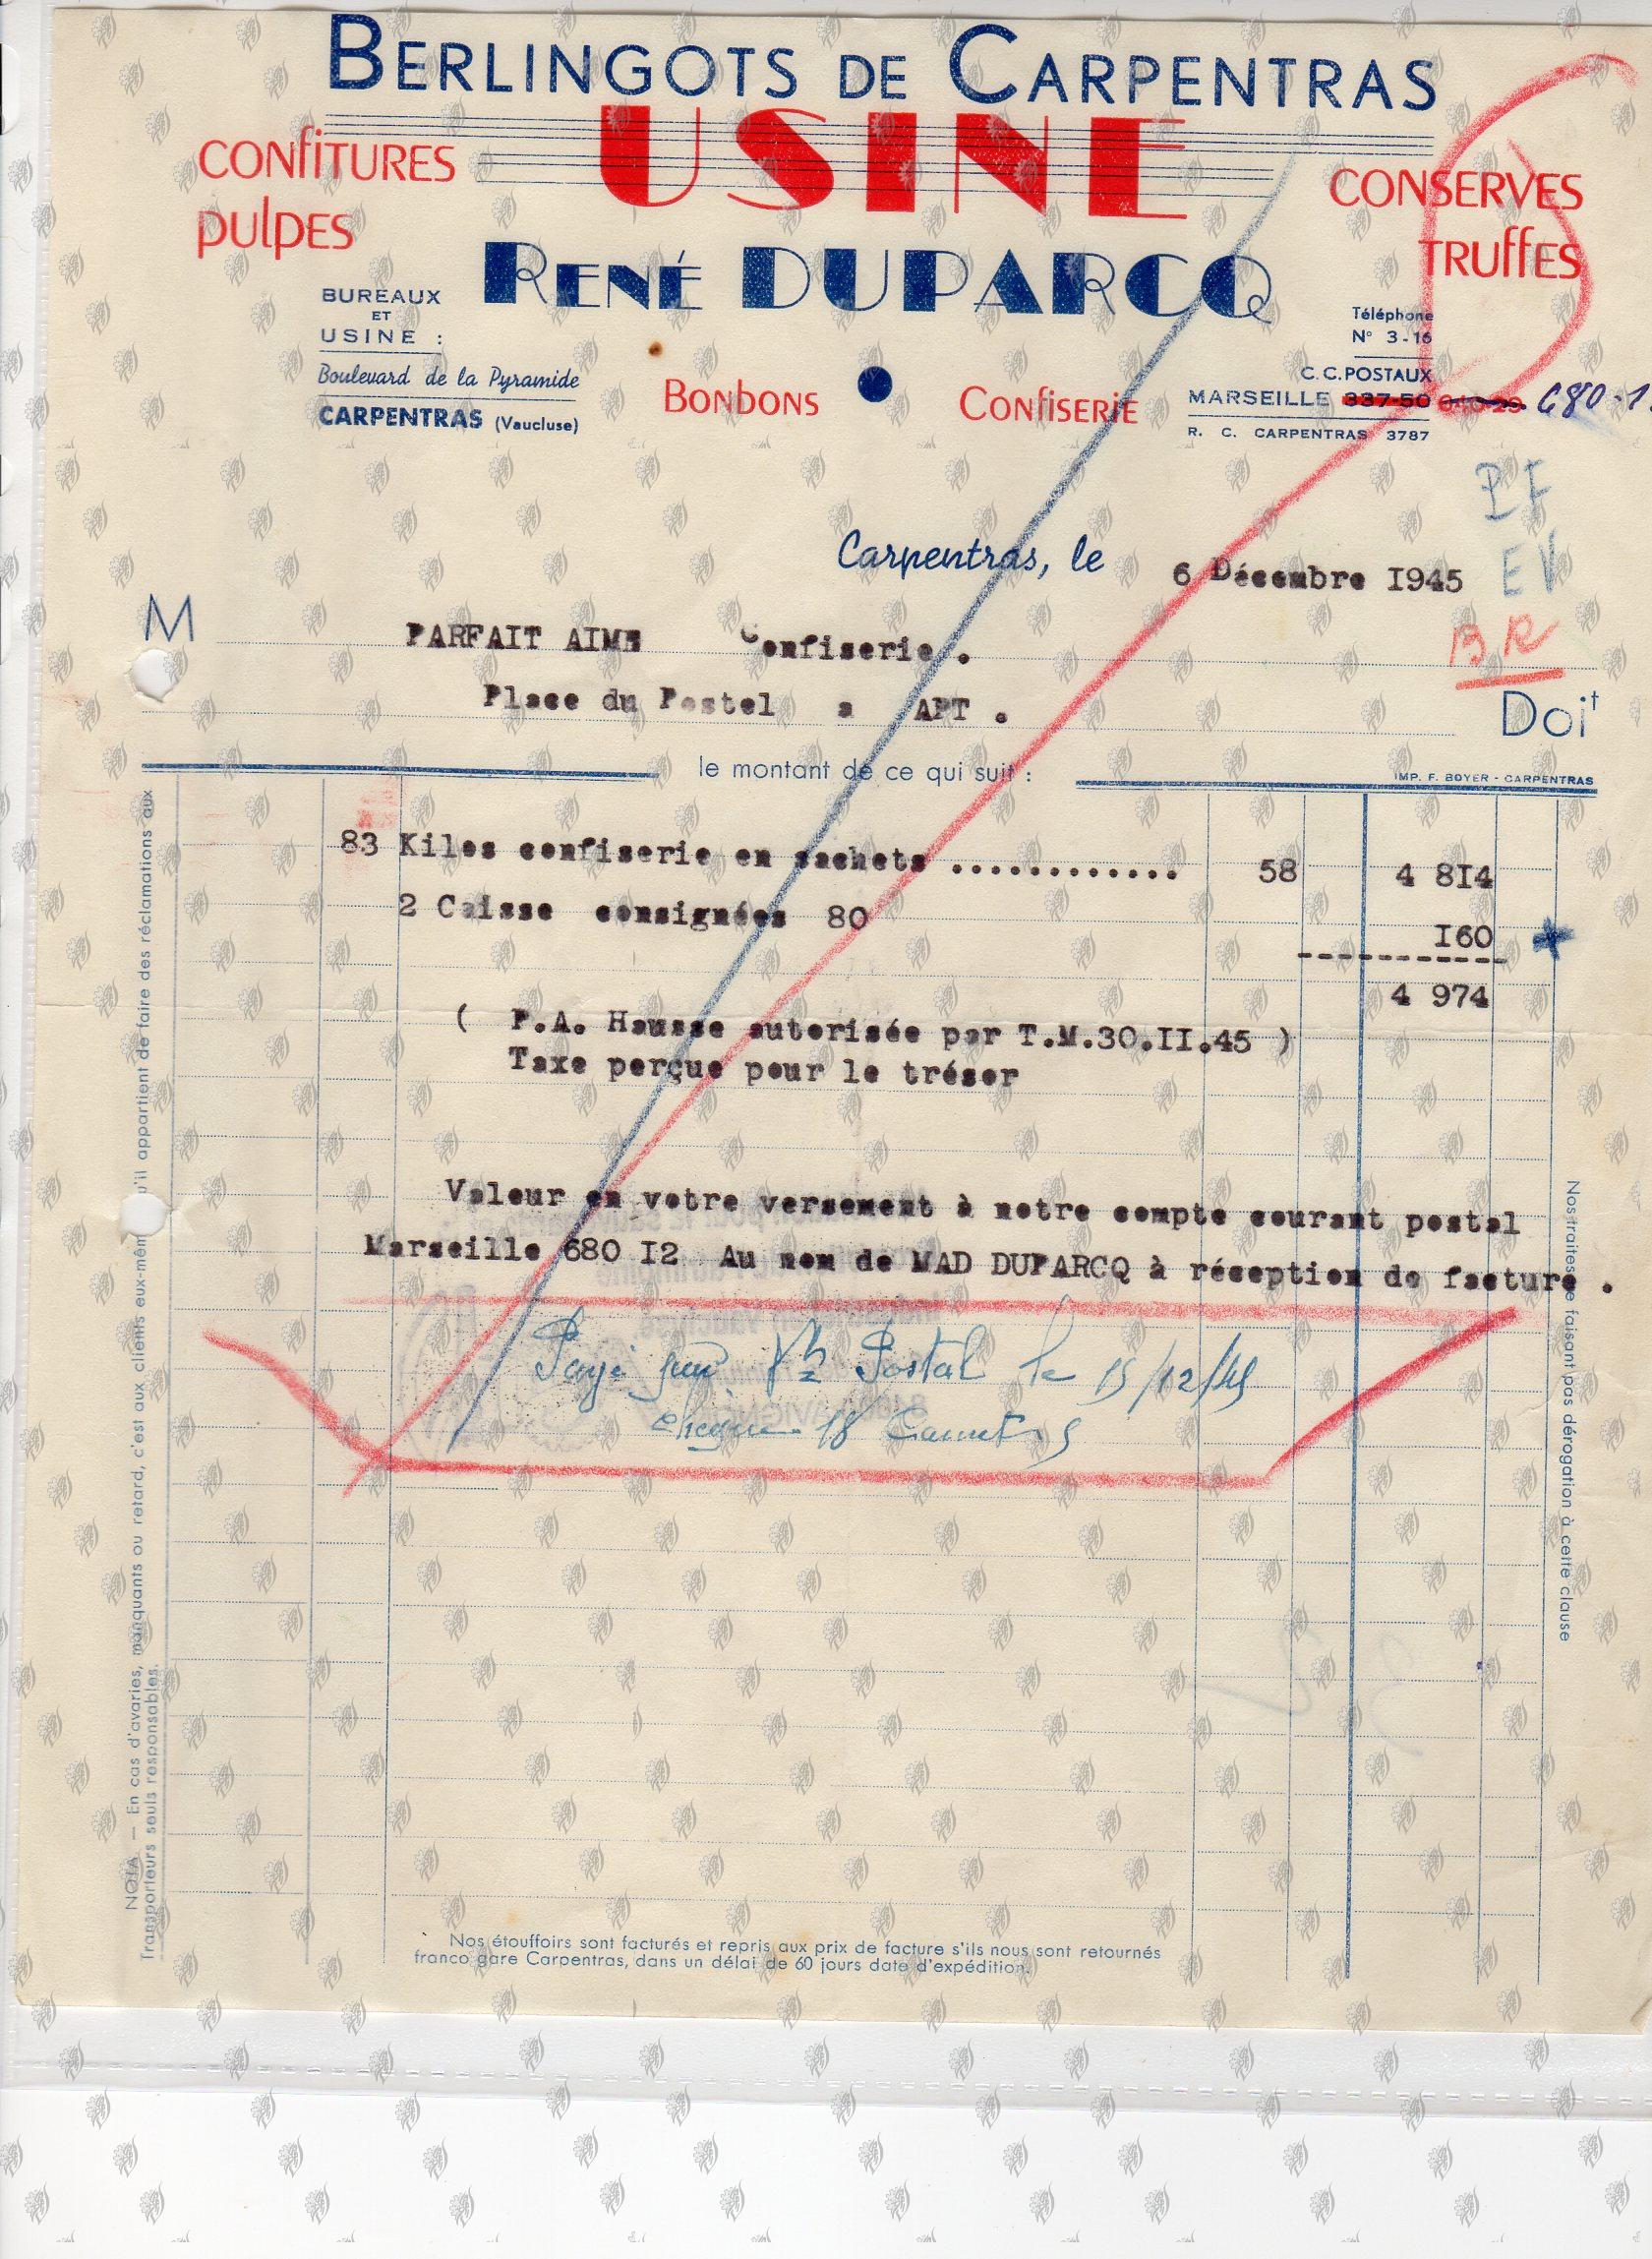 BERLINGOTS DE CARPENTRAS
USINE
CONFITURES
PULPES
CONSERVES
TRUFFES
RENÉ DUPARCQ
BUREAUX
ET
USINE :
Boulevard de la Pyramide
CARPENTRAS (Vaucluse)
BONBONS
CONFISERIE
Téléphone
N° 3-16
C.C.POSTAUX
MARSEILLE 337-50 680-1
R. C. CARPENTRAS 3787
PF
EV
BR
Carpentras, le 6 Décembre I945
M PARFAIT AIME Confiserie .
Place du Postel a APT .
Doit
le montant de ce qui suit :
IMP. F. BOYER - CARPENTRAS
83 Kilos confiserie en sachets ............ 58 4 8I4
2 Caisse consignées 80 I60
4 974
( P.A. Hausse autorisée par T.M.30.II.45 )
Taxe perçue pour le trésor
Valeur en votre versement à notre compte courant postal
Marseille 680 I2 Au nom de MAD DUPARCQ à réception de facture .
Payé par Postal le 15/12/45
chèque 18
NOTA — En cas d'avaries, manquants ou retard, c'est aux clients eux-mêm u'il appartient de faire des réclamations aux
Transporteurs seuls responsables.
Nos traites ne faisant pas dérogation à cette clause
Nos étouffoirs sont facturés et repris aux prix de facture s'ils nous sont retournés
franco gare Carpentras, dans un délai de 60 jours date d'expédition.